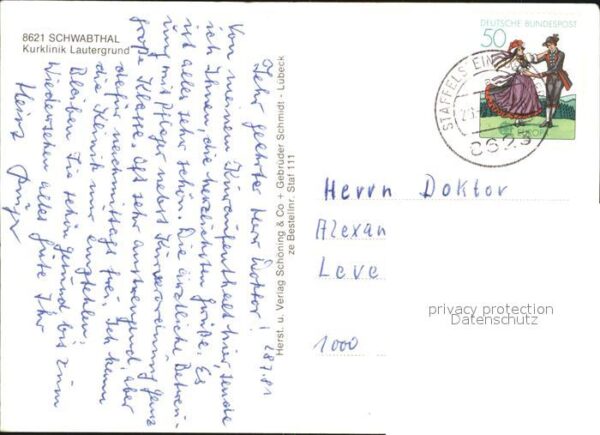 8621 SCHWABTHAL
Kurklinik Lautergrund
Sehr geehrter Herr Doktor! 28.7.81
Von meinem Kuraufenthalt hier, sende
ich Ihnen, die herzlichsten Grüße. Es
ist alles sehr schön. Die ärztliche Betreu-
ung mit Pfleger nebst ganz
große Klasse. Oft sehr anstrengend, aber
dafür nachmittags frei. Ich kann
die Klinik nur empfehlen.
Bleiben Sie schön gesund bis zum
Wiedersehen alles Gute Ihr
Heinz
Herst. u. Verlag Schöning & Co + Gebrüder Schmidt - Lübeck
ze Bestellnr. Staf 111
DEUTSCHE BUNDESPOST
50
STAFFELSTEIN
8623
Herrn Doktor
Alexan
Leve
1000
privacy protection
Datenschutz